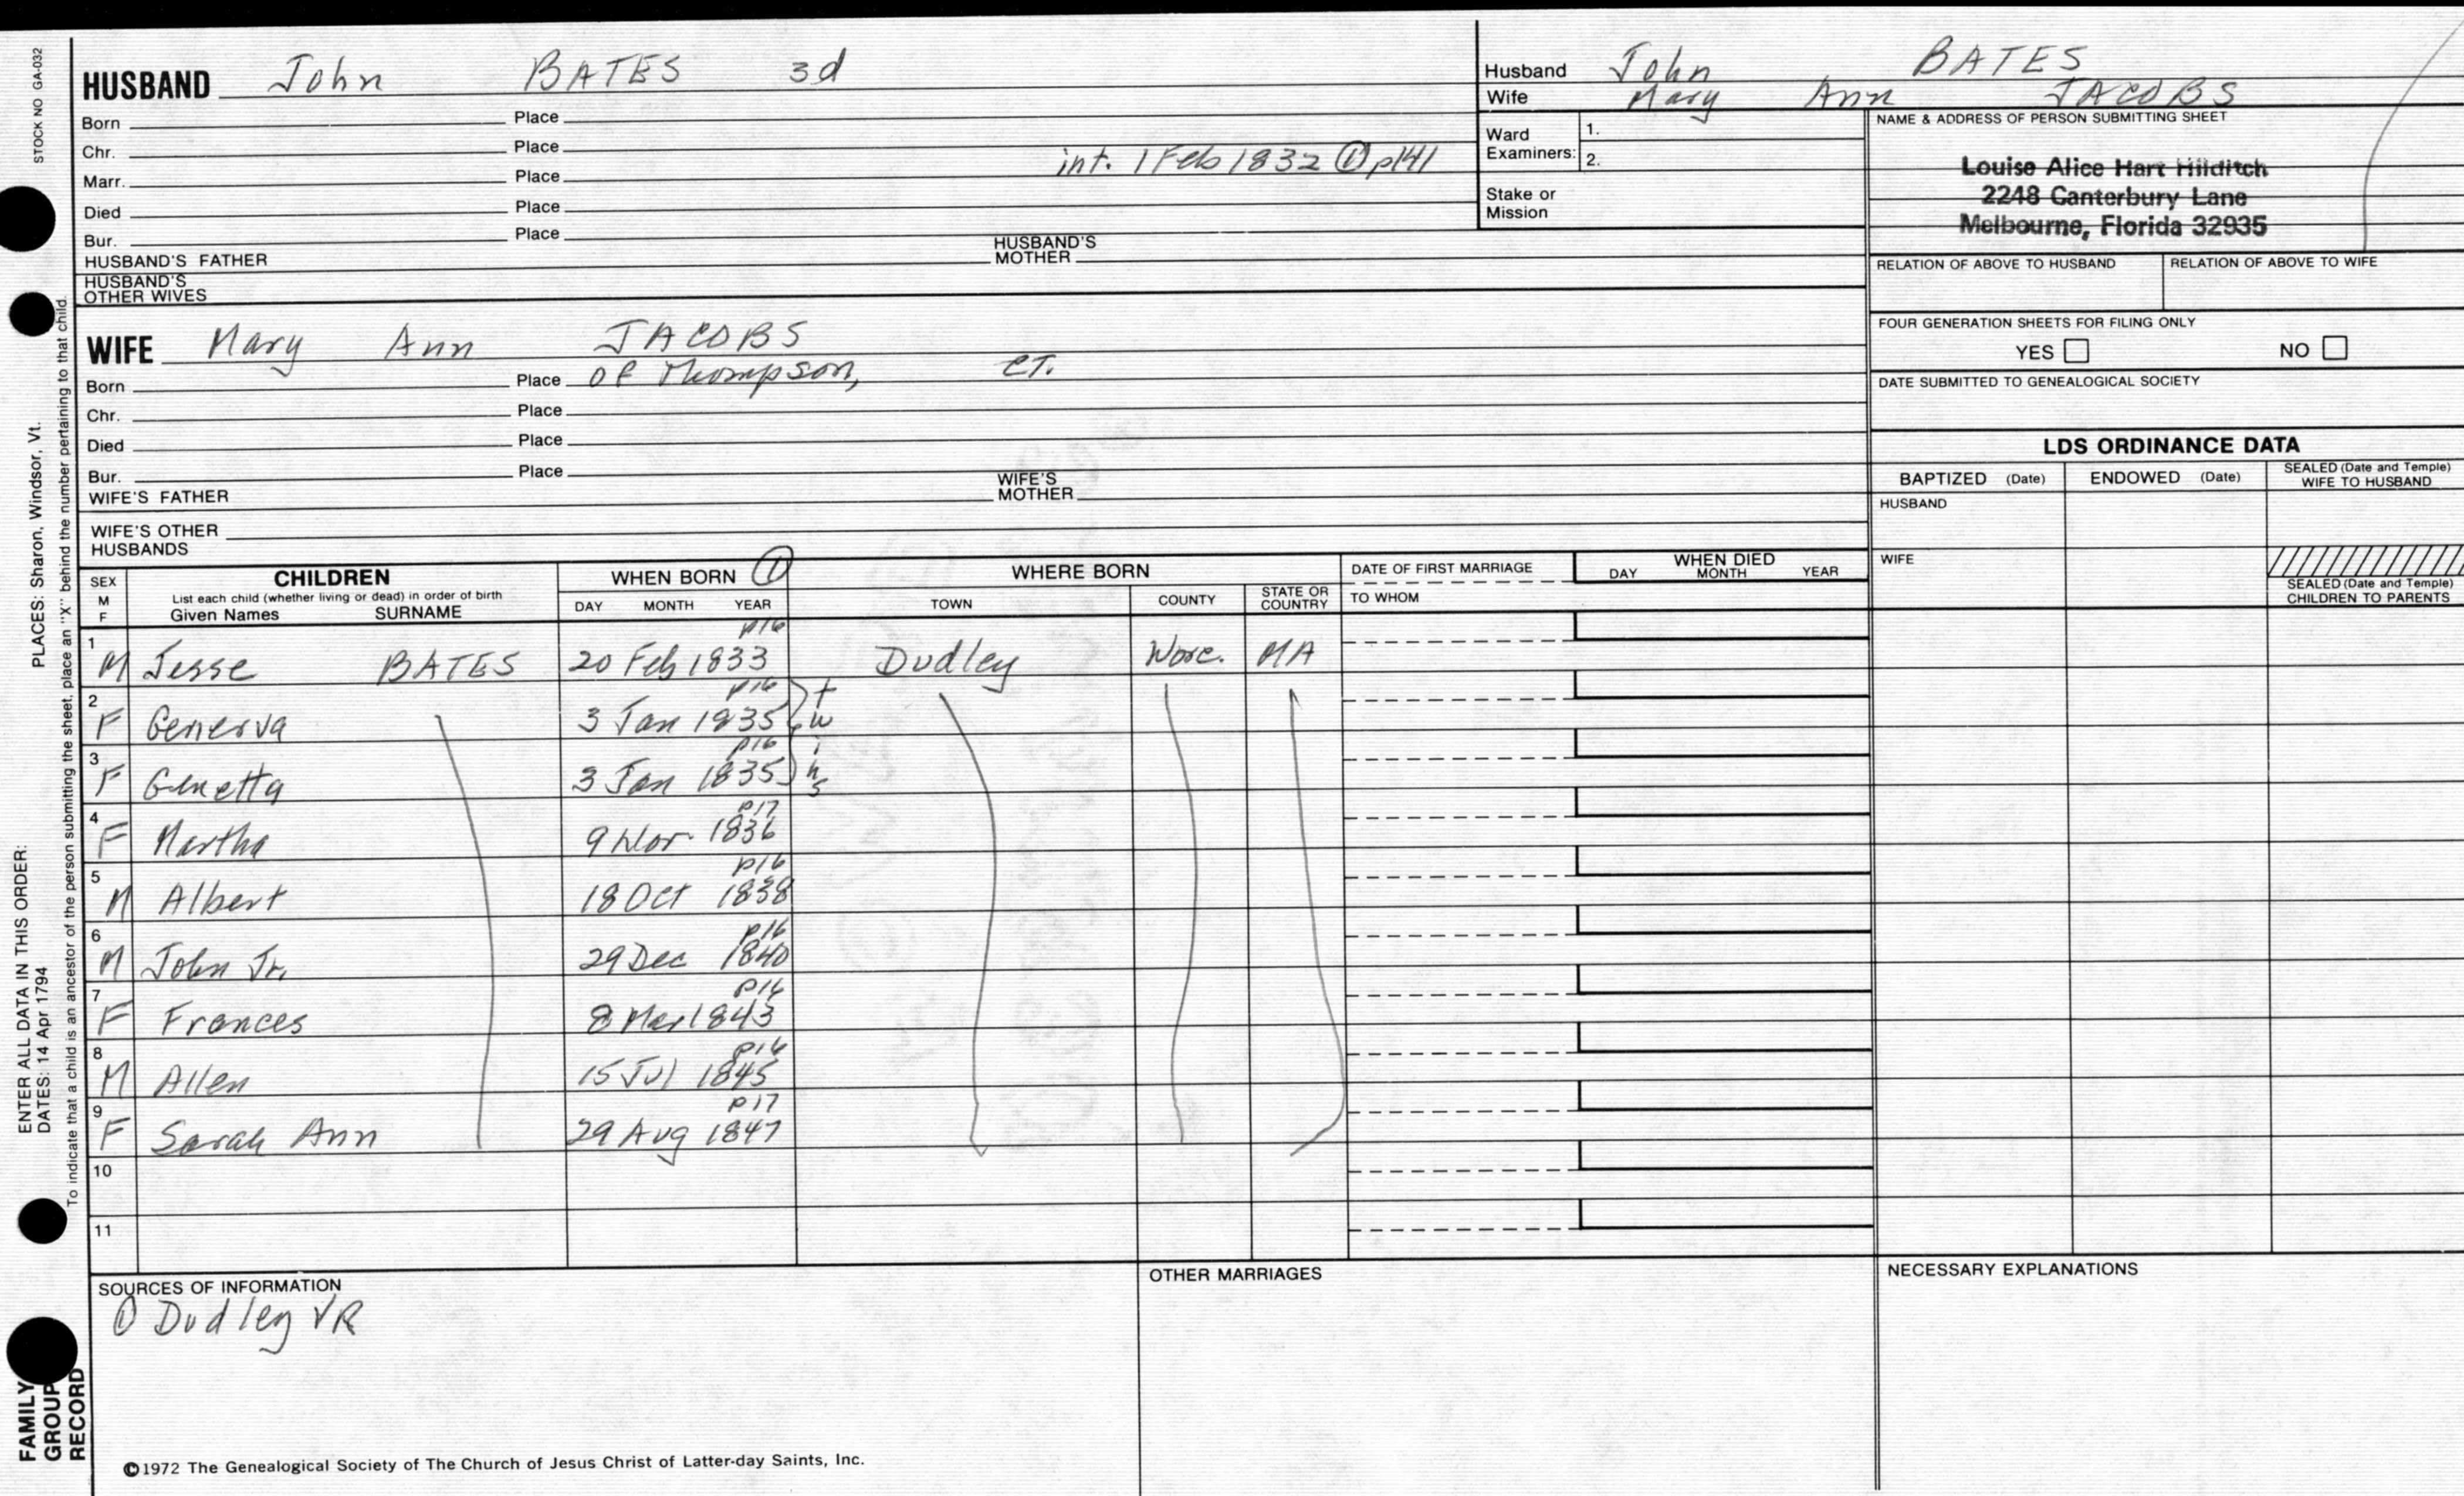 STOCK NO GA-032
HUSBAND John BATES 3d
Born Place
Chr. Place
int. 1 Feb 1832 ① p141
Marr. Place
Died Place
Bur. Place
HUSBAND'S FATHER HUSBAND'S MOTHER
HUSBAND'S OTHER WIVES
Husband John BATES
Wife Mary Ann JACOBS
Ward Examiners: 1.
2.
Stake or Mission
NAME & ADDRESS OF PERSON SUBMITTING SHEET
Louise Alice Hart Hilditch
2248 Canterbury Lane
Melbourne, Florida 32935
RELATION OF ABOVE TO HUSBAND RELATION OF ABOVE TO WIFE
FOUR GENERATION SHEETS FOR FILING ONLY
YES NO
DATE SUBMITTED TO GENEALOGICAL SOCIETY
WIFE Mary Ann JACOBS
Born Place of Thompson, CT.
Chr. Place
Died Place
Bur. Place
WIFE'S FATHER WIFE'S MOTHER
WIFE'S OTHER HUSBANDS
LDS ORDINANCE DATA
BAPTIZED (Date) ENDOWED (Date) SEALED (Date and Temple) WIFE TO HUSBAND
HUSBAND
WIFE
SEALED (Date and Temple) CHILDREN TO PARENTS
SEX M F
CHILDREN
List each child (whether living or dead) in order of birth
Given Names SURNAME
WHEN BORN ①
DAY MONTH YEAR
WHERE BORN
TOWN COUNTY STATE OR COUNTRY
DATE OF FIRST MARRIAGE
TO WHOM
WHEN DIED
DAY MONTH YEAR
p16
1 M Jesse BATES 20 Feb 1833 Dudley Worc. MA
p16
2 F Generva 3 Jan 1835 twins
p16
3 F Genetta 3 Jan 1835
p17
4 F Martha 9 Nov. 1836
p16
5 M Albert 18 Oct 1838
p16
6 M John Jr. 29 Dec 1840
p16
7 F Frances 8 Mar 1843
p16
8 M Allen 15 Jul 1845
p17
9 F Sarah Ann 29 Aug 1847
10
11
SOURCES OF INFORMATION
① Dudley VR
OTHER MARRIAGES
NECESSARY EXPLANATIONS
©1972 The Genealogical Society of The Church of Jesus Christ of Latter-day Saints, Inc.
ENTER ALL DATA IN THIS ORDER:
DATES: 14 Apr 1794
PLACES: Sharon, Windsor, Vt.
To indicate that a child is an ancestor of the person submitting the sheet, place an "X" behind the number pertaining to that child.
FAMILY GROUP RECORD